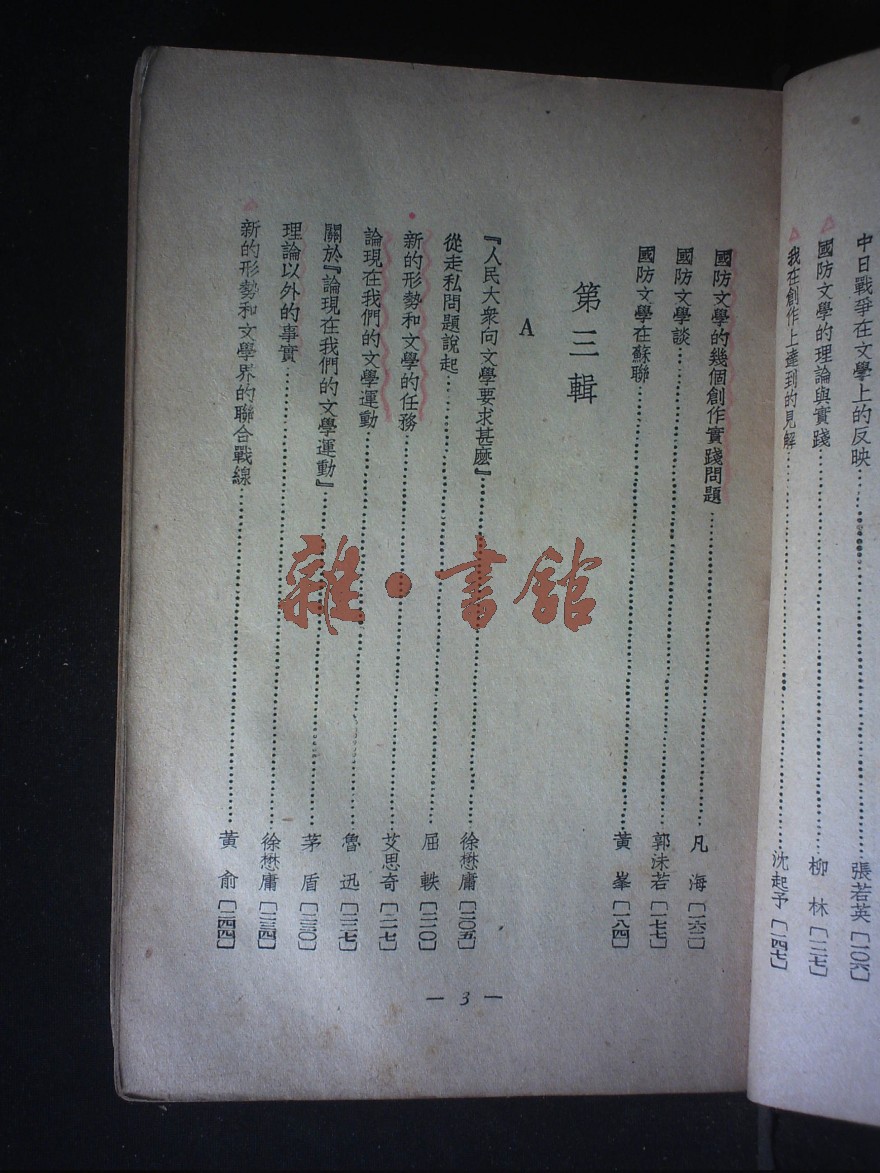 中日戰爭在文學上的反映……張若英〔一〇六〕
國防文學的理論與實踐……柳林〔一二七〕
我在創作上達到的見解……沈起予〔一四七〕
國防文學的幾個創作實踐問題……凡海〔一六二〕
國防文學談……郭沫若〔一七七〕
國防文學在蘇聯……黃峯〔一八四〕
第三輯
A
『人民大衆向文學要求甚麽』……徐懋庸〔二〇五〕
從走私問題說起……屈軼〔二一〇〕
新的形勢和文學的任務……艾思奇〔二一七〕
論現在我們的文學運動……魯迅〔二二七〕
關於『論現在我們的文學運動』……茅盾〔二三〇〕
理論以外的事實……徐懋庸〔二三四〕
新的形勢和文學界的聯合戰線……黃俞〔二四四〕
— 3 —
雜·書館